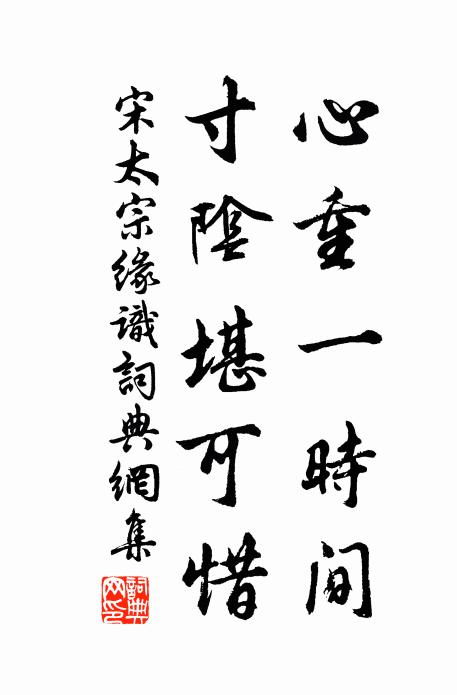 心重一時間
寸陰堪可惜
宋太宗緣識詞典網集
詞典網印